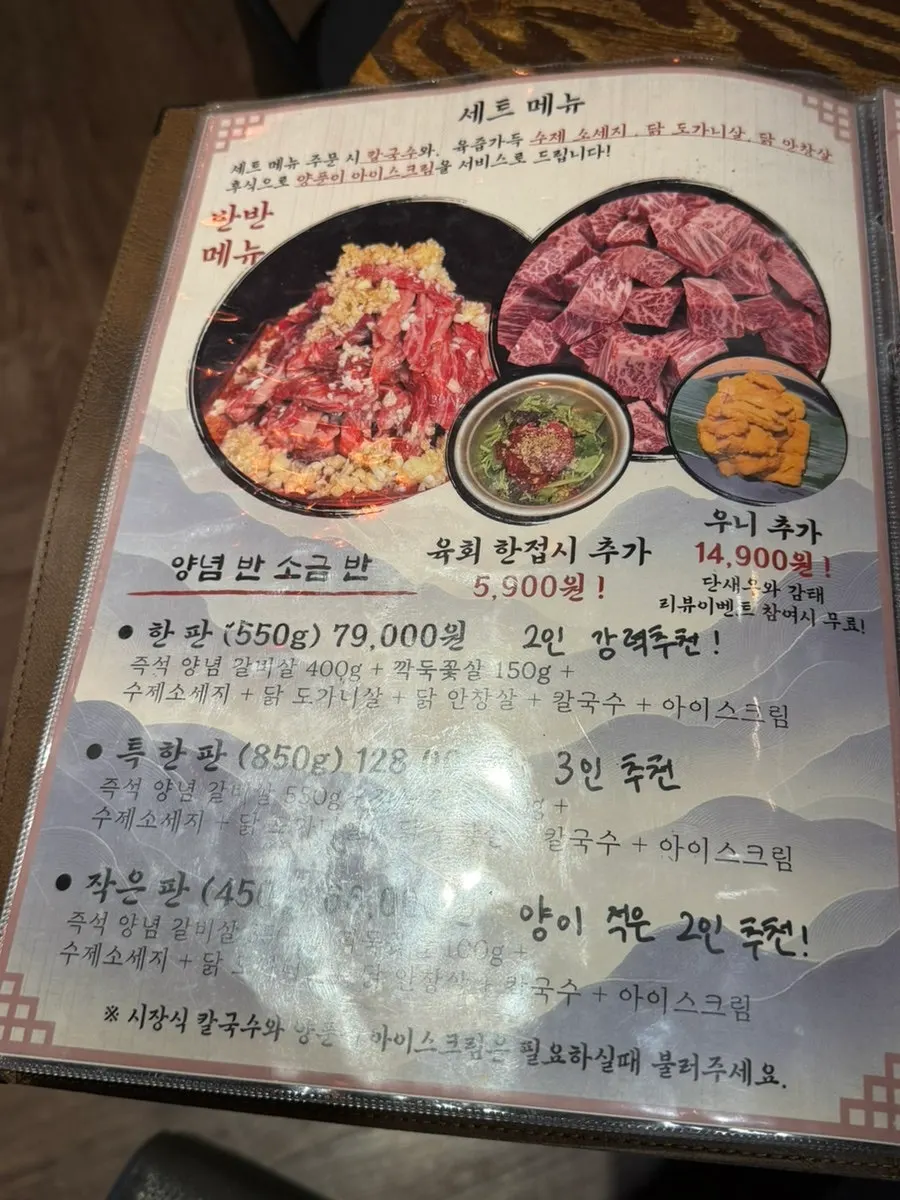 세트 메뉴
세트 메뉴 주문 시 칼국수와, 육즙가득 수제 소세지, 닭 도가니살, 닭 안창살
후식으로 양푼이 아이스크림을 서비스로 드립니다!
반반
메뉴
양념 반 소금 반
육회 한접시 추가
5,900원!
우니 추가
14,900원!
단새우와 감태
리뷰이벤트 참여시 무료!
• 한 판 (550g) 79,000원 2인 강력추천!
즉석 양념 갈비살 400g + 깍둑꽃살 150g +
수제소세지 + 닭 도가니살 + 닭 안창살 + 칼국수 + 아이스크림
• 특 한 판 (850g) 3인 추천
즉석 양념 갈비살 550g +
수제소세지 + 닭 칼국수 + 아이스크림
• 작은 판 양이 적은 2인 추천!
즉석 양념 갈비살 100g +
수제소세지 + 닭 + 닭 안창살 + 칼국수 + 아이스크림
※ 시장식 칼국수와 아이스크림은 필요하실때 불러주세요.